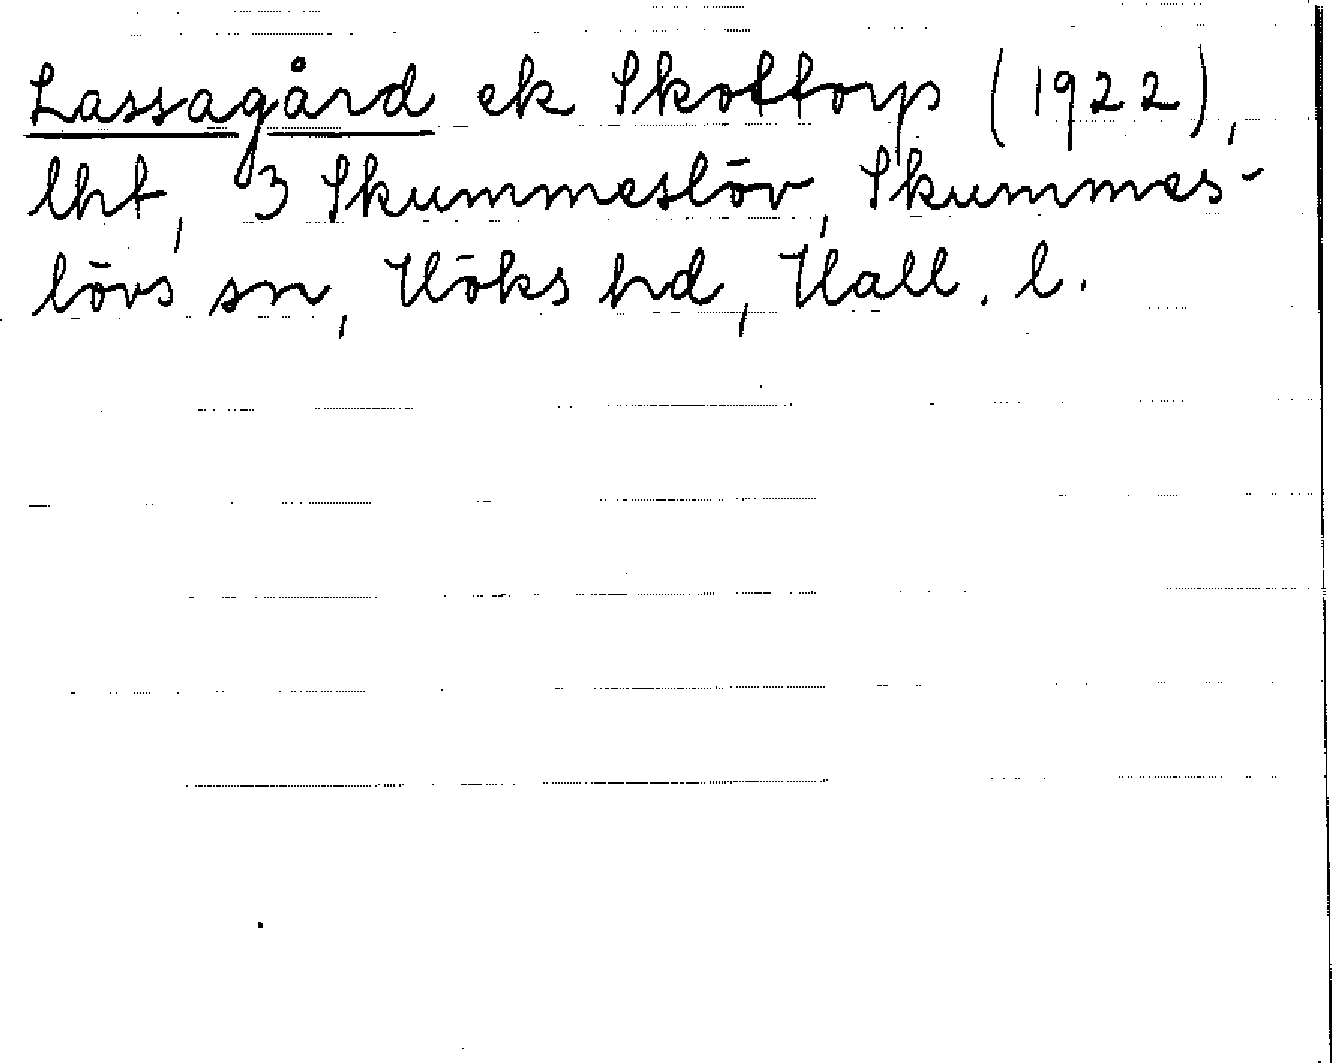 Lassagård ek Skottorp (1922),
lht, 3 Skummeslöv, Skummes-
lövs sn, Höks hd, Hall. l.